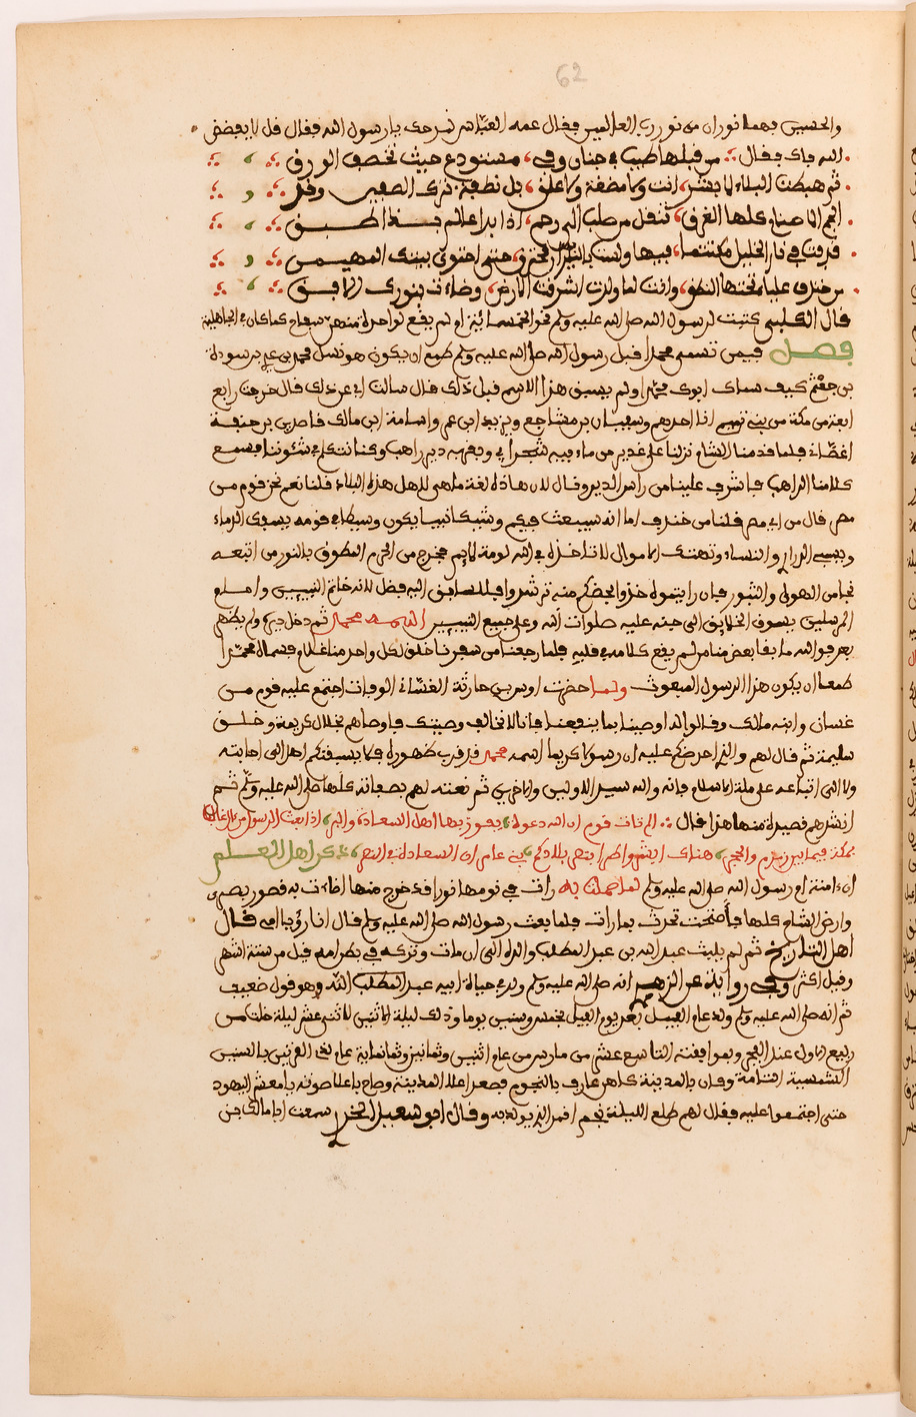 62
والحسين فهما نوران من نور رب العالمين فقال عمه العباس نمدحك يا رسول الله فقال قل لا يفضض
الله فاك فقال من قبلها طبت في جنان وفي مستودع حيث تخصف الورق
ثم هبطت البلاد لا بشر انت ولا مضغة ولا علق بل نطفة تركب السفين وقد
الجم اصناما كلها الغرق تنقل من صلب الى رحم اذا بدا عالم بدا طبق
وردت في نار الخليل مكتتما فيها ولست بالنار تحترق حتى احتوى بيتك المهيمن
من خندف علياء تحتها النطق وانت لما ولدت اشرقت الارض وضاءت بنورك الافق
قال الكلبي كتبت لرسول الله صلى الله عليه وسلم نحو الخمسمائة ام لم يقع لواحدة منهن سفاح كما كان في الجاهلية
فصل فيمن تسمى محمدا قبل رسول الله صلى الله عليه وسلم طمع ان يكون هو نسل محمد بن عدي بن سودة
بن جعثم كيف سماك ابوك محمدا ولم يسبق هذا الاسم قبل ذلك قال سالت ابي عن ذلك قال خرجت رابع
اربعة من مكة من بني تميم انا احدهم وسفيان بن مشاجع ويزيد ابن عم واسامة ابن مالك قاصدين بن جفنة
فلما قدمنا الشام نزلنا على غدير من ماء فيه شجرا وبقربه دير راهب وكنا نتكلم في شئوننا فسمع
كلامنا الراهب فاشرف علينا من راس الدير وقال ان هاذه لغة ما هي لاهل هذه البلاد فلنا نعم نحن قوم من
مضر قال من اي مضر قلنا من خندف اما انه سيبعث فيكم وشيكا نبيا يكون وسيطا في قومه يسفك الدماء
ويسبي الذراري والنساء ويهتك الاموال لا تاخذه في الله لومة لايم مخرج من الحرم المطوق بالنور من اتبعه
نجا من الهول والثبور فان رايتموه خذوا بحضكم منه ترشدوا
المرسلين يسوق الخلايق الى جنته عليه صلوات الله وعلى جميع النبيين اسمه محمد ثم دخل ديره ولم يظهر
فوالله ما بقا بعض منا من لم يقع كلامه في قلبه فلما رجعنا من سفرنا خلق لكل واحد منا غلام فسماه محمدا
طمعا ان يكون هذا الرسول المبعوث ولما حضرت اوس بن حارثة الغسان الوفاة اجتمع عليه قوم من
غسان وابنه مالك وقالوا له اوصينا بما ينفعنا فانا لا نخالف وصيتك فاوصاهم بخلال كريمة وخلق
سليمة ثم قال لهم والذي احرضكم عليه ان رسولا كريما اسمه محمد قد قرب ظهوره فلا يسبقنكم احد الى اجابته
ولا الى اتباعه على ملة الاسلام فانه والله سيد الاولين والاخرين ثم نعته لهم بصفاته كلها صلى الله عليه وسلم ثم
انشدهم قصيدة منها هذا فقال الم تات قوم ان الله دعوة يفوز بها اهل السعادة والبر اذا بعث الرسول من ال غالب
بمكة فيما بين زمزم والحجر هناك ابشروا طرا بنصر بلادكم بني عامر ان السعادة في النصر ذكر اهل العلم
ان امنة ام رسول الله صلى الله عليه وسلم لما حملت به رات في نومها نورا قد خرج منها اضاءت به قصور بصرى
وارض الشام كلها فاصبحت تحدث بما رات فلما بعث رسول الله صلى الله عليه وسلم قال انا رؤيا امي قال
اهل التاريخ ثم لم يلبث عبد الله بن عبد المطلب والده الى ان مات وتركه في بطن امه قيل من ستة اشهر
وقيل اكثر وفي رواية عن الزهري انه صلى الله عليه وسلم ولد في حياة ابيه عبد المطلب الله وهو قول ضعيف
ثم انه صلى الله عليه وسلم ولد عام الفيل بعد يوم الفيل بخمس وستين يوما وذلك ليلة الاثنين لاثنتي عشر ليلة خلت من
ربيع الاول عند الفجر وبموافقته التاسع عشر من مارس من عام اثنين وثمانين وثمانماية عام لذي القرنين بالسنين
الشمسية التامة وكان بالمدينة كاهن عارف بالنجوم فصعد اعلا المدينة وصاح باعلا صوته يا معشر اليهود
حتى اجتمعوا عليه فقال لهم طلع الليلة نجم احمد الذي يولد به وقال ابو سعيد الخدري سمعت ابا مالك بن